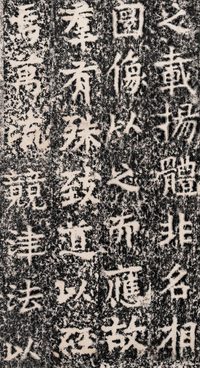 之載揚體非名相
圖像以之而應故
羣有殊致道以
焉萬流競津法以